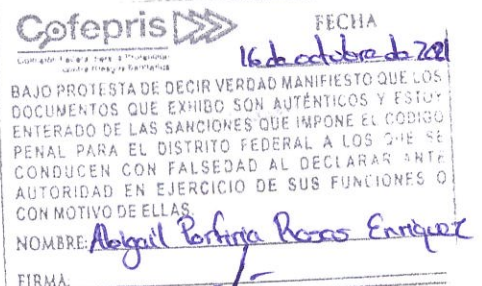 Cofepris
FECHA
16 de octubre de 2021
Comisión Federal para la Protección
contra Riesgos Sanitarios
BAJO PROTESTA DE DECIR VERDAD MANIFIESTO QUE LOS
DOCUMENTOS QUE EXHIBO SON AUTÉNTICOS Y ESTOY
ENTERADO DE LAS SANCIONES QUE IMPONE EL CODIGO
PENAL PARA EL DISTRITO FEDERAL A LOS QUE SE
CONDUCEN CON FALSEDAD AL DECLARAR ANTE
AUTORIDAD EN EJERCICIO DE SUS FUNCIONES O
CON MOTIVO DE ELLAS.
NOMBRE: Abigail Porfiria Rosas Enriquez
FIRMA: